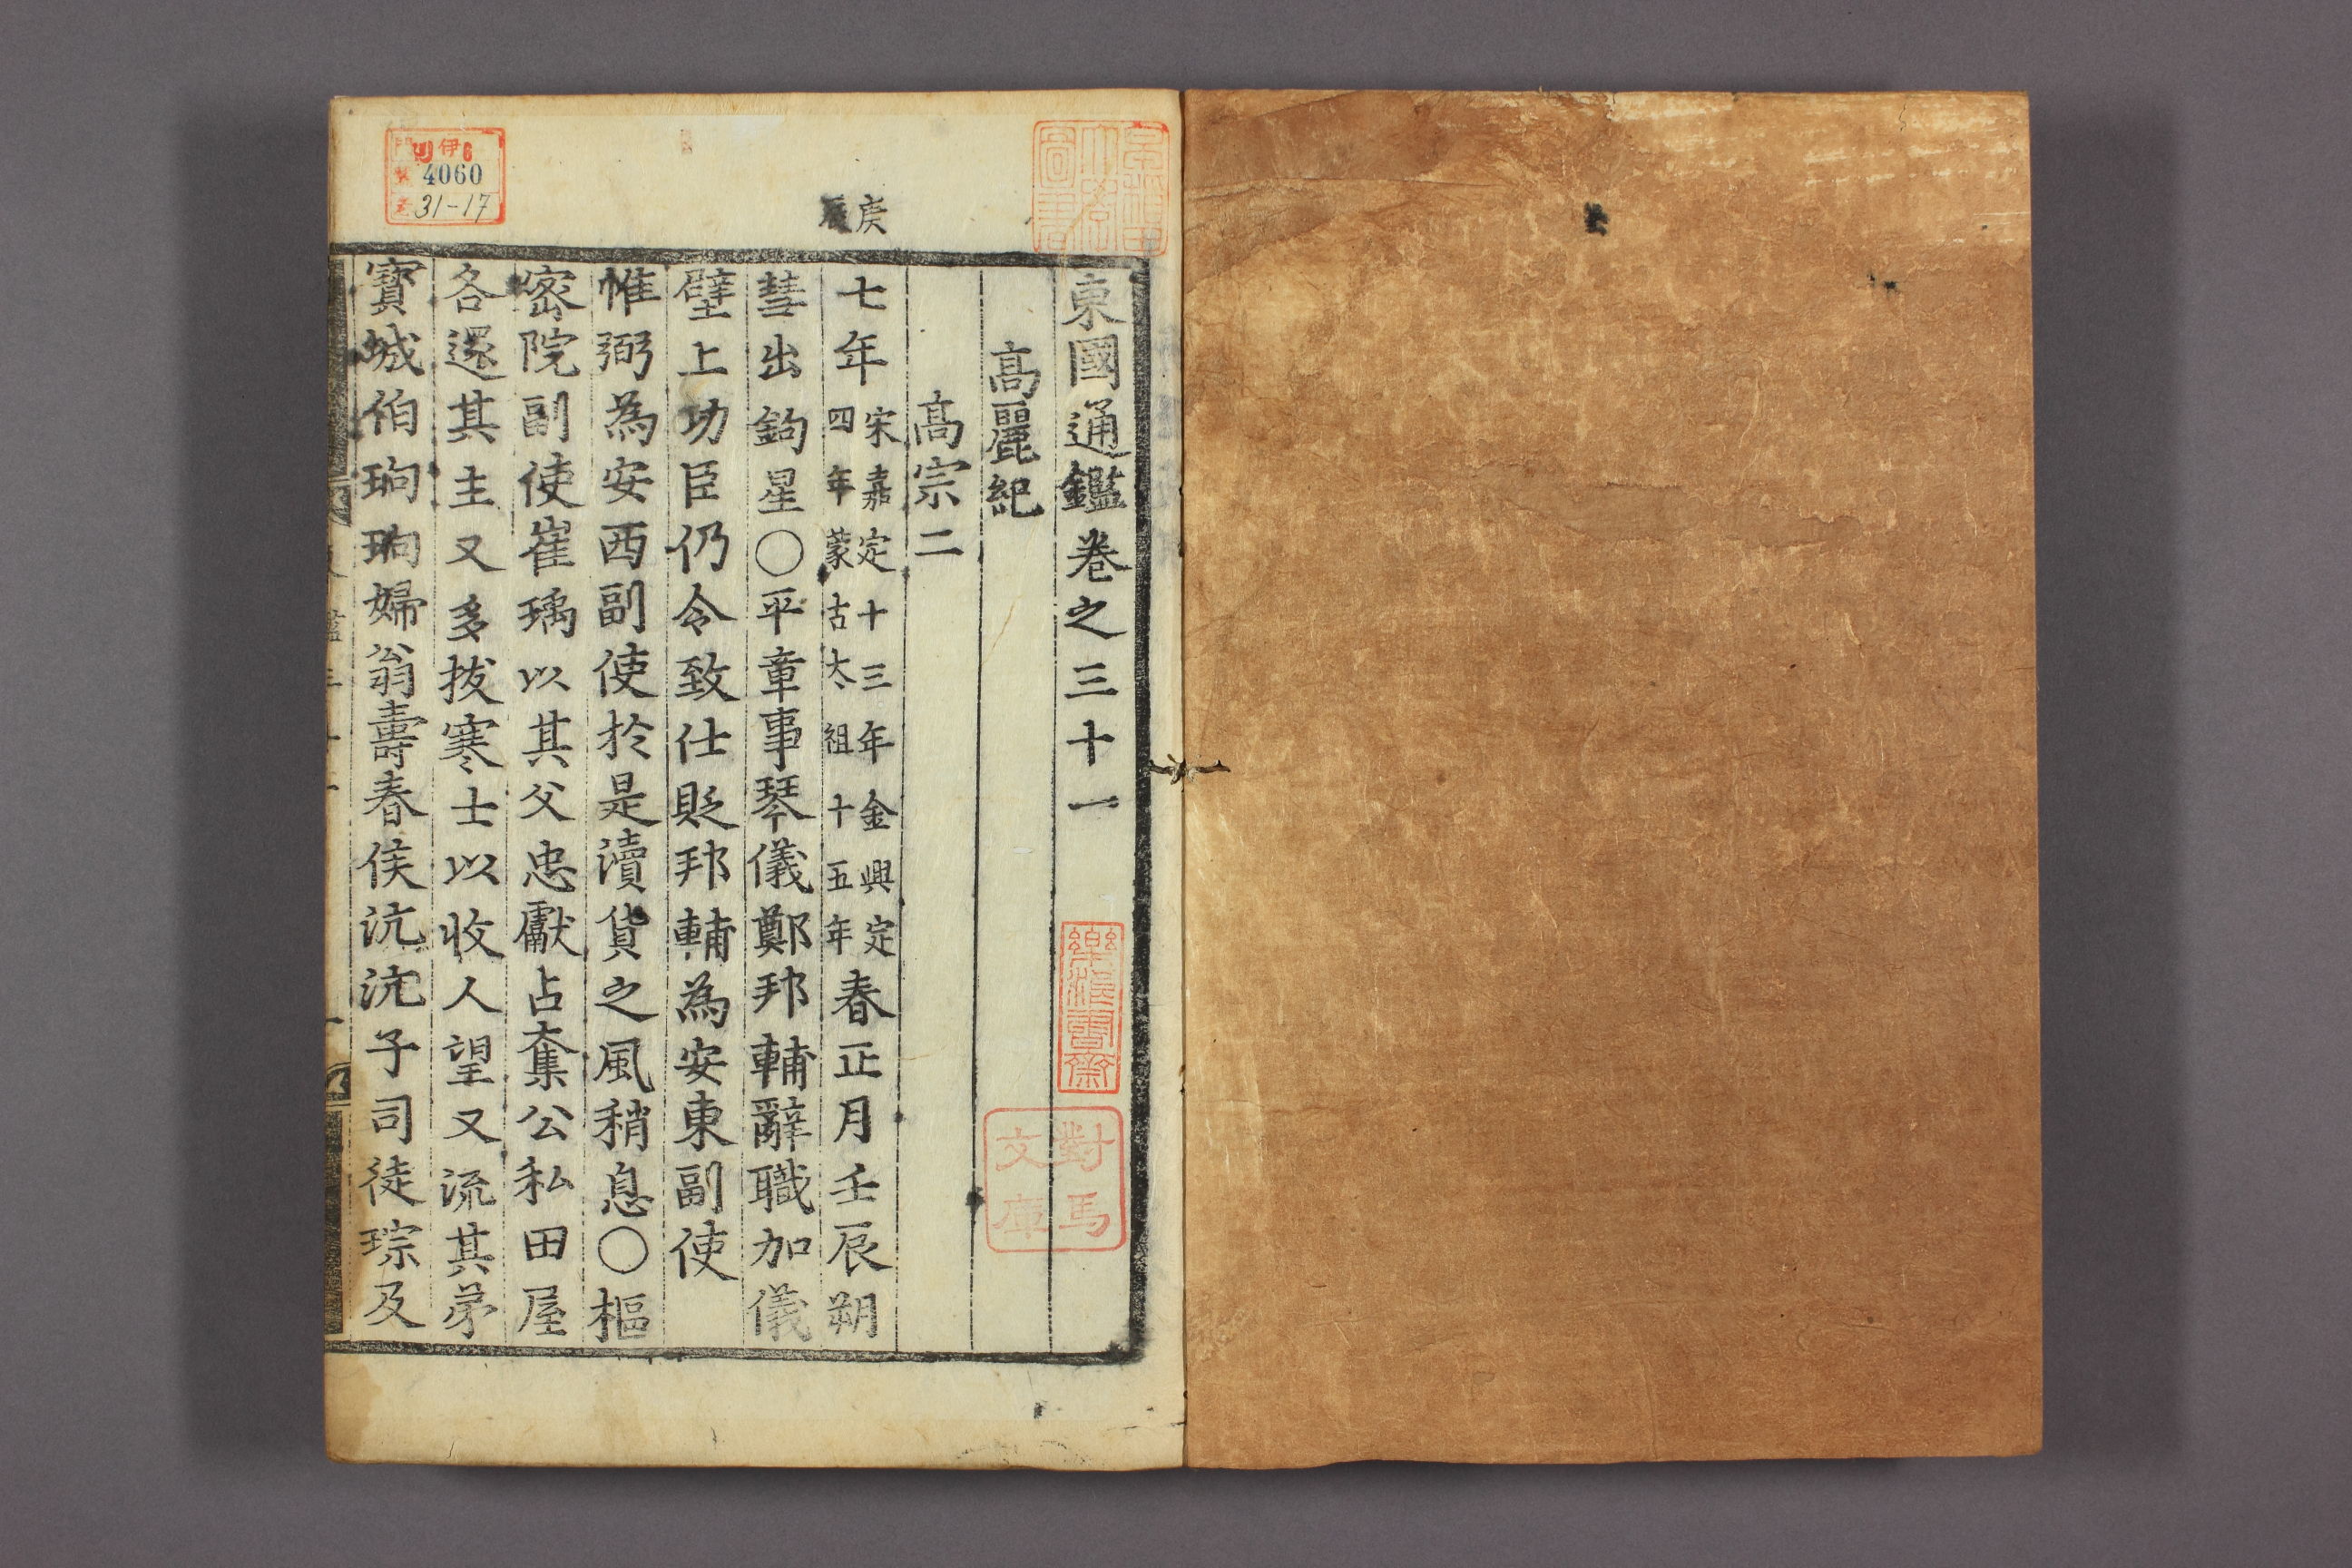 東國通鑑卷之三十一
高麗紀
高宗二
庚
辰
七年宋嘉定十三年金興定四年蒙古太祖十五年春正月壬辰朔
彗出鉤星〇平章事琴儀鄭邦輔辭職加儀
壁上功臣仍令致仕貶邦輔為安東副使
惟弼為安西副使於是瀆貨之風稍息〇樞
密院副使崔瑀以其父忠獻占奪公私田屋
各還其主又多拔寒士以收人望又流其弟
寶城伯珦珦婦翁壽春侯沆沆子司徒琮及
樂浪書齋
對馬
文庫
伊6
4060
31-17